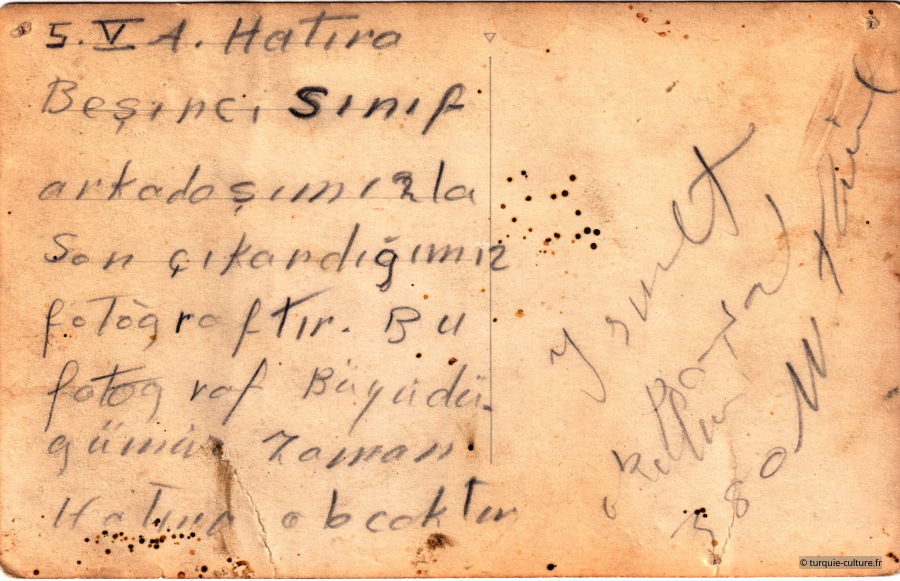 5. V A. Hatıra
Beşinci Sınıf
arkadaşımızla
Son çıkardığımız
fotoğraftır. Bu
fotoğraf Büyüdü-
ğümüz zaman
Hatıra olacaktır
İsmet
380
© turquie-culture.fr